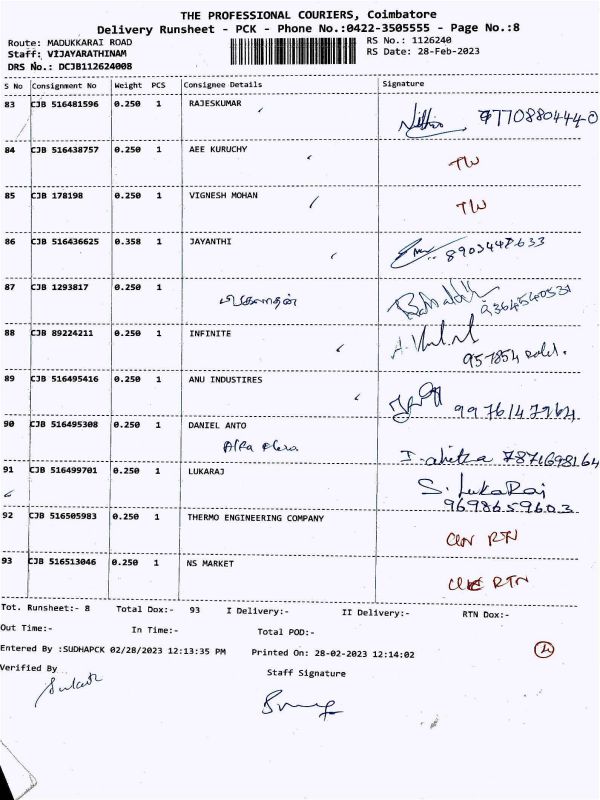 THE PROFESSIONAL COURIERS, Coimbatore
Delivery Runsheet - PCK - Phone No.:0422-3505555 - Page No.:8
Route: MADUKKARAI ROAD
RS No.: 1126240
Staff: VIJAYARATHINAM
RS Date: 28-Feb-2023
DRS No.: DCJB112624008
S No Consignment No Weight PCS Consignee Details Signature
83 CJB 516481596 0.250 1 RAJESKUMAR
84 CJB 516438757 0.250 1 AEE KURUCHY
TW
85 CJB 178198 0.250 1 VIGNESH MOHAN
TW
86 CJB 516436625 0.358 1 JAYANTHI
87 CJB 1293817 0.250 1
88 CJB 89224211 0.250 1 INFINITE
89 CJB 516495416 0.250 1 ANU INDUSTIRES
9976147964
90 CJB 516495308 0.250 1 DANIEL ANTO
7871698164
91 CJB 516499701 0.250 1 LUKARAJ
S. LukaRaj
9698659603
92 CJB 516505983 0.250 1 THERMO ENGINEERING COMPANY
RTN
93 CJB 516513046 0.250 1 NS MARKET
RTN
Tot. Runsheet:- 8 Total Dox:- 93 I Delivery:- II Delivery:- RTN Dox:-
Out Time:- In Time:- Total POD:-
Entered By :SUDHAPCK 02/28/2023 12:13:35 PM Printed On: 28-02-2023 12:14:02
Verified By Staff Signature